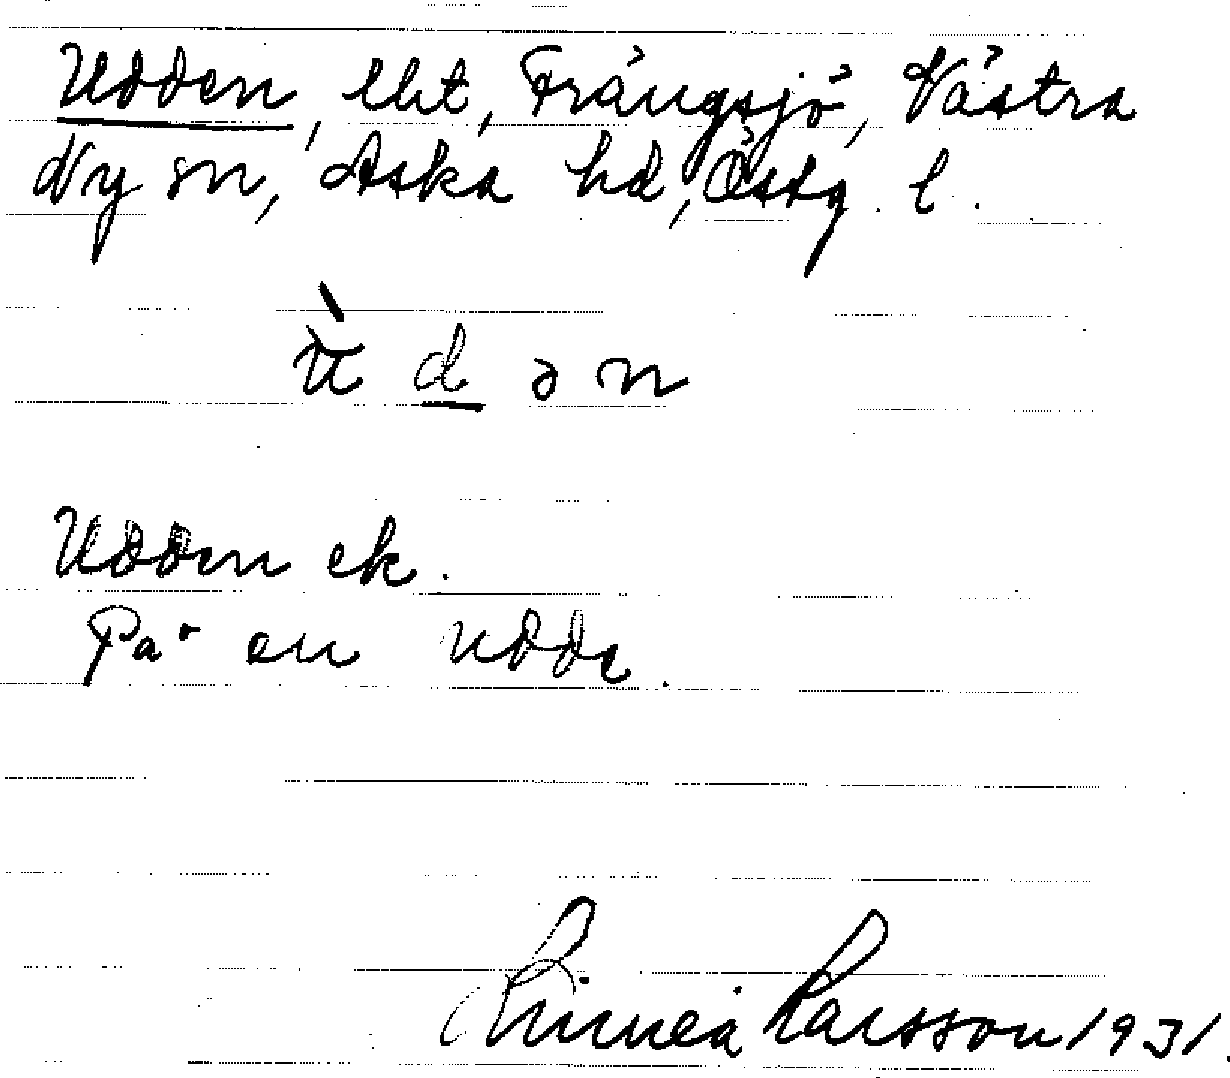 Udden, lht, Frängsjö, Västra
Ny sn, Aska hd, Östg. l.
ù d ə n
Udden ek.
På en udde.
Linnea Larsson 1931.